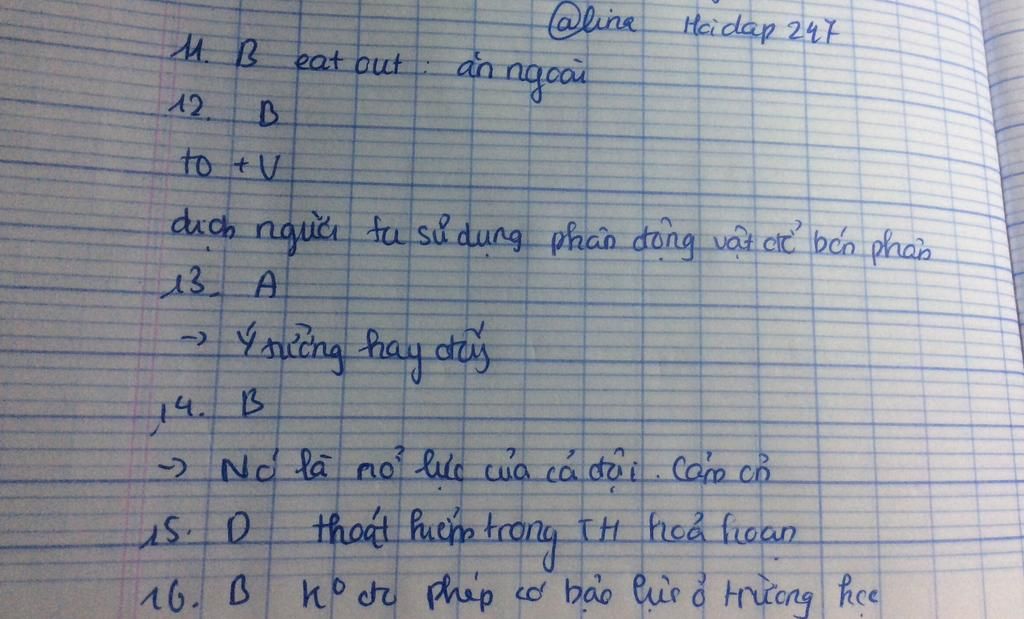 @lina Hoidap 247
11. B eat out : ăn ngoài
12. B
to + V
dịch người ta sử dụng phân động vật để bón phân
13. A
-> Ý tưởng hay đấy
14. B
-> Nó là nổ lực của cả đội. Cảm ơn
15. D thoát hiểm trong TH hoả hoạn
16. B ko đc phép có bạo lực ở trường học